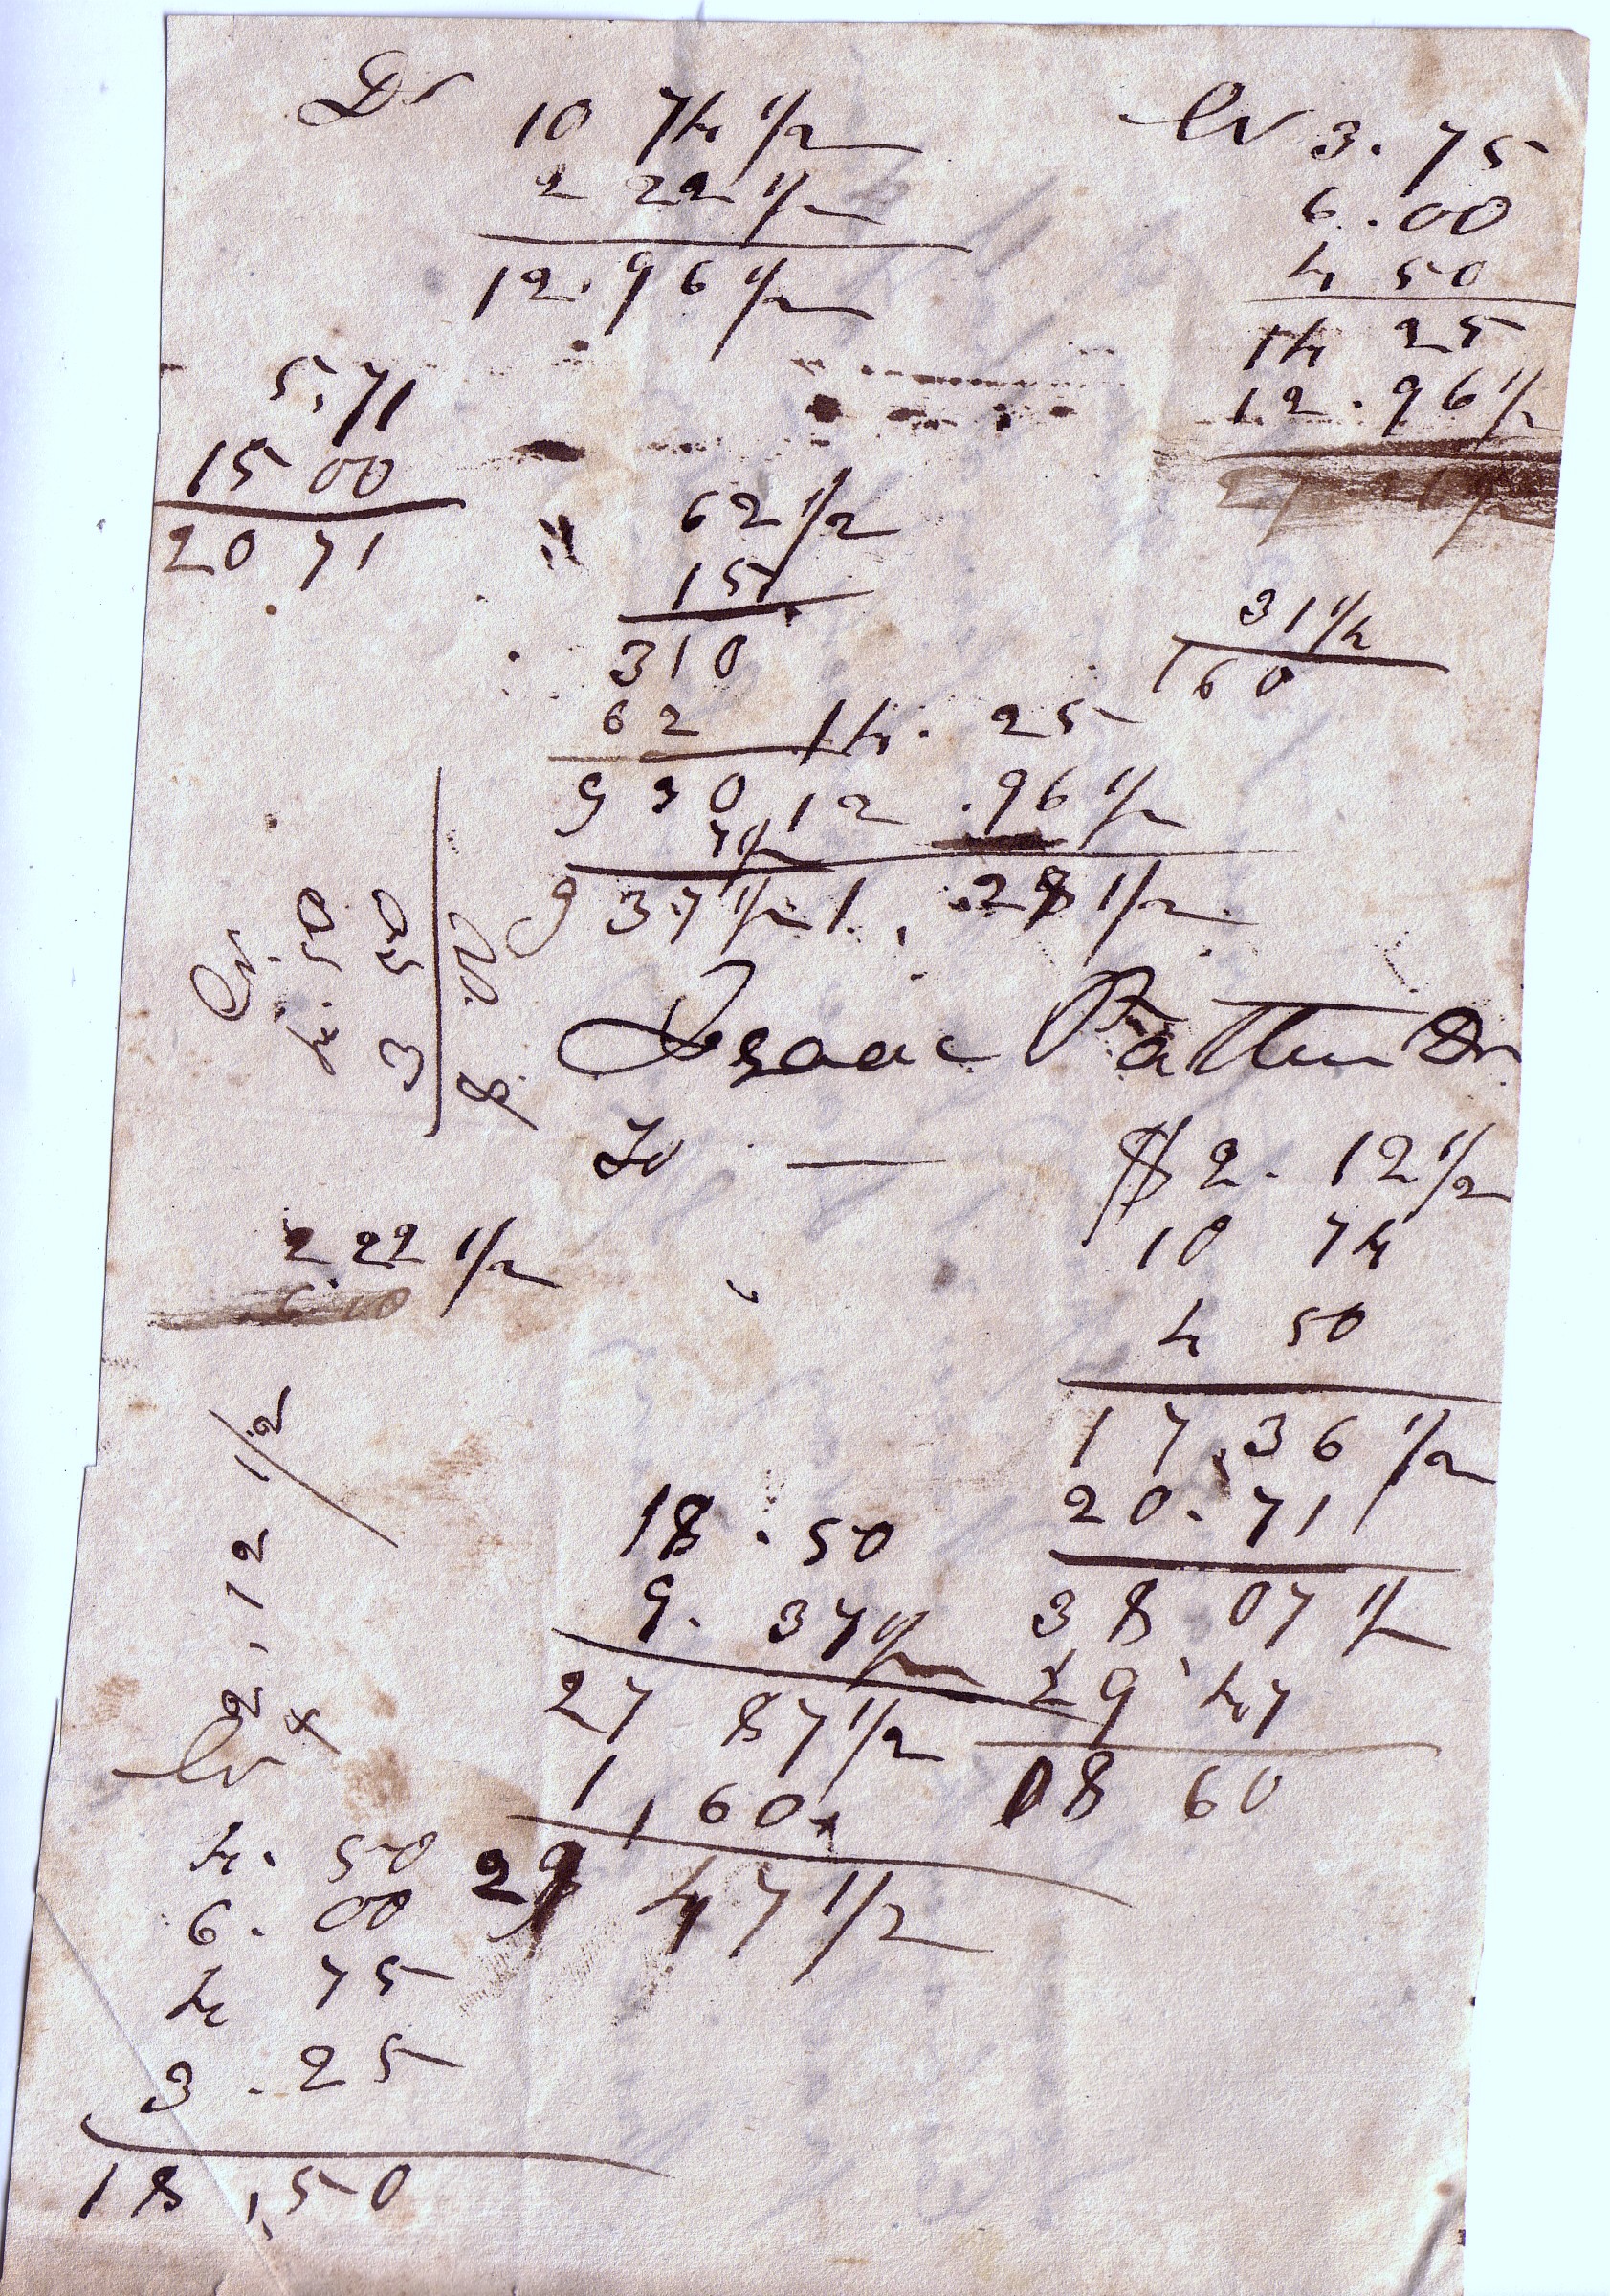 Dr 10 74 1/2
2 22 1/2
12.96 1/2
Cr 3.75
6.00
4 50
14 25
12.96 1/2
5,71
15 00
20 71
62 1/2
15
310
62
930
7 1/2
9 37 1/2
31 1/4
160
14.25
12.96 1/2
1.28 1/2
Cr.
4.50
3 50
8.00
Isaac Patten Dr
To —
$2.12 1/2
10 74
4 50
17,36 1/2
20.71
38 07 1/2
29 47
08 60
2 22 1/2
2.12 1/2
18.50
9.37 1/2
27 87 1/2
1,60
29 47 1/2
Cr
4.50
6.00
4 75
3.25
18,50